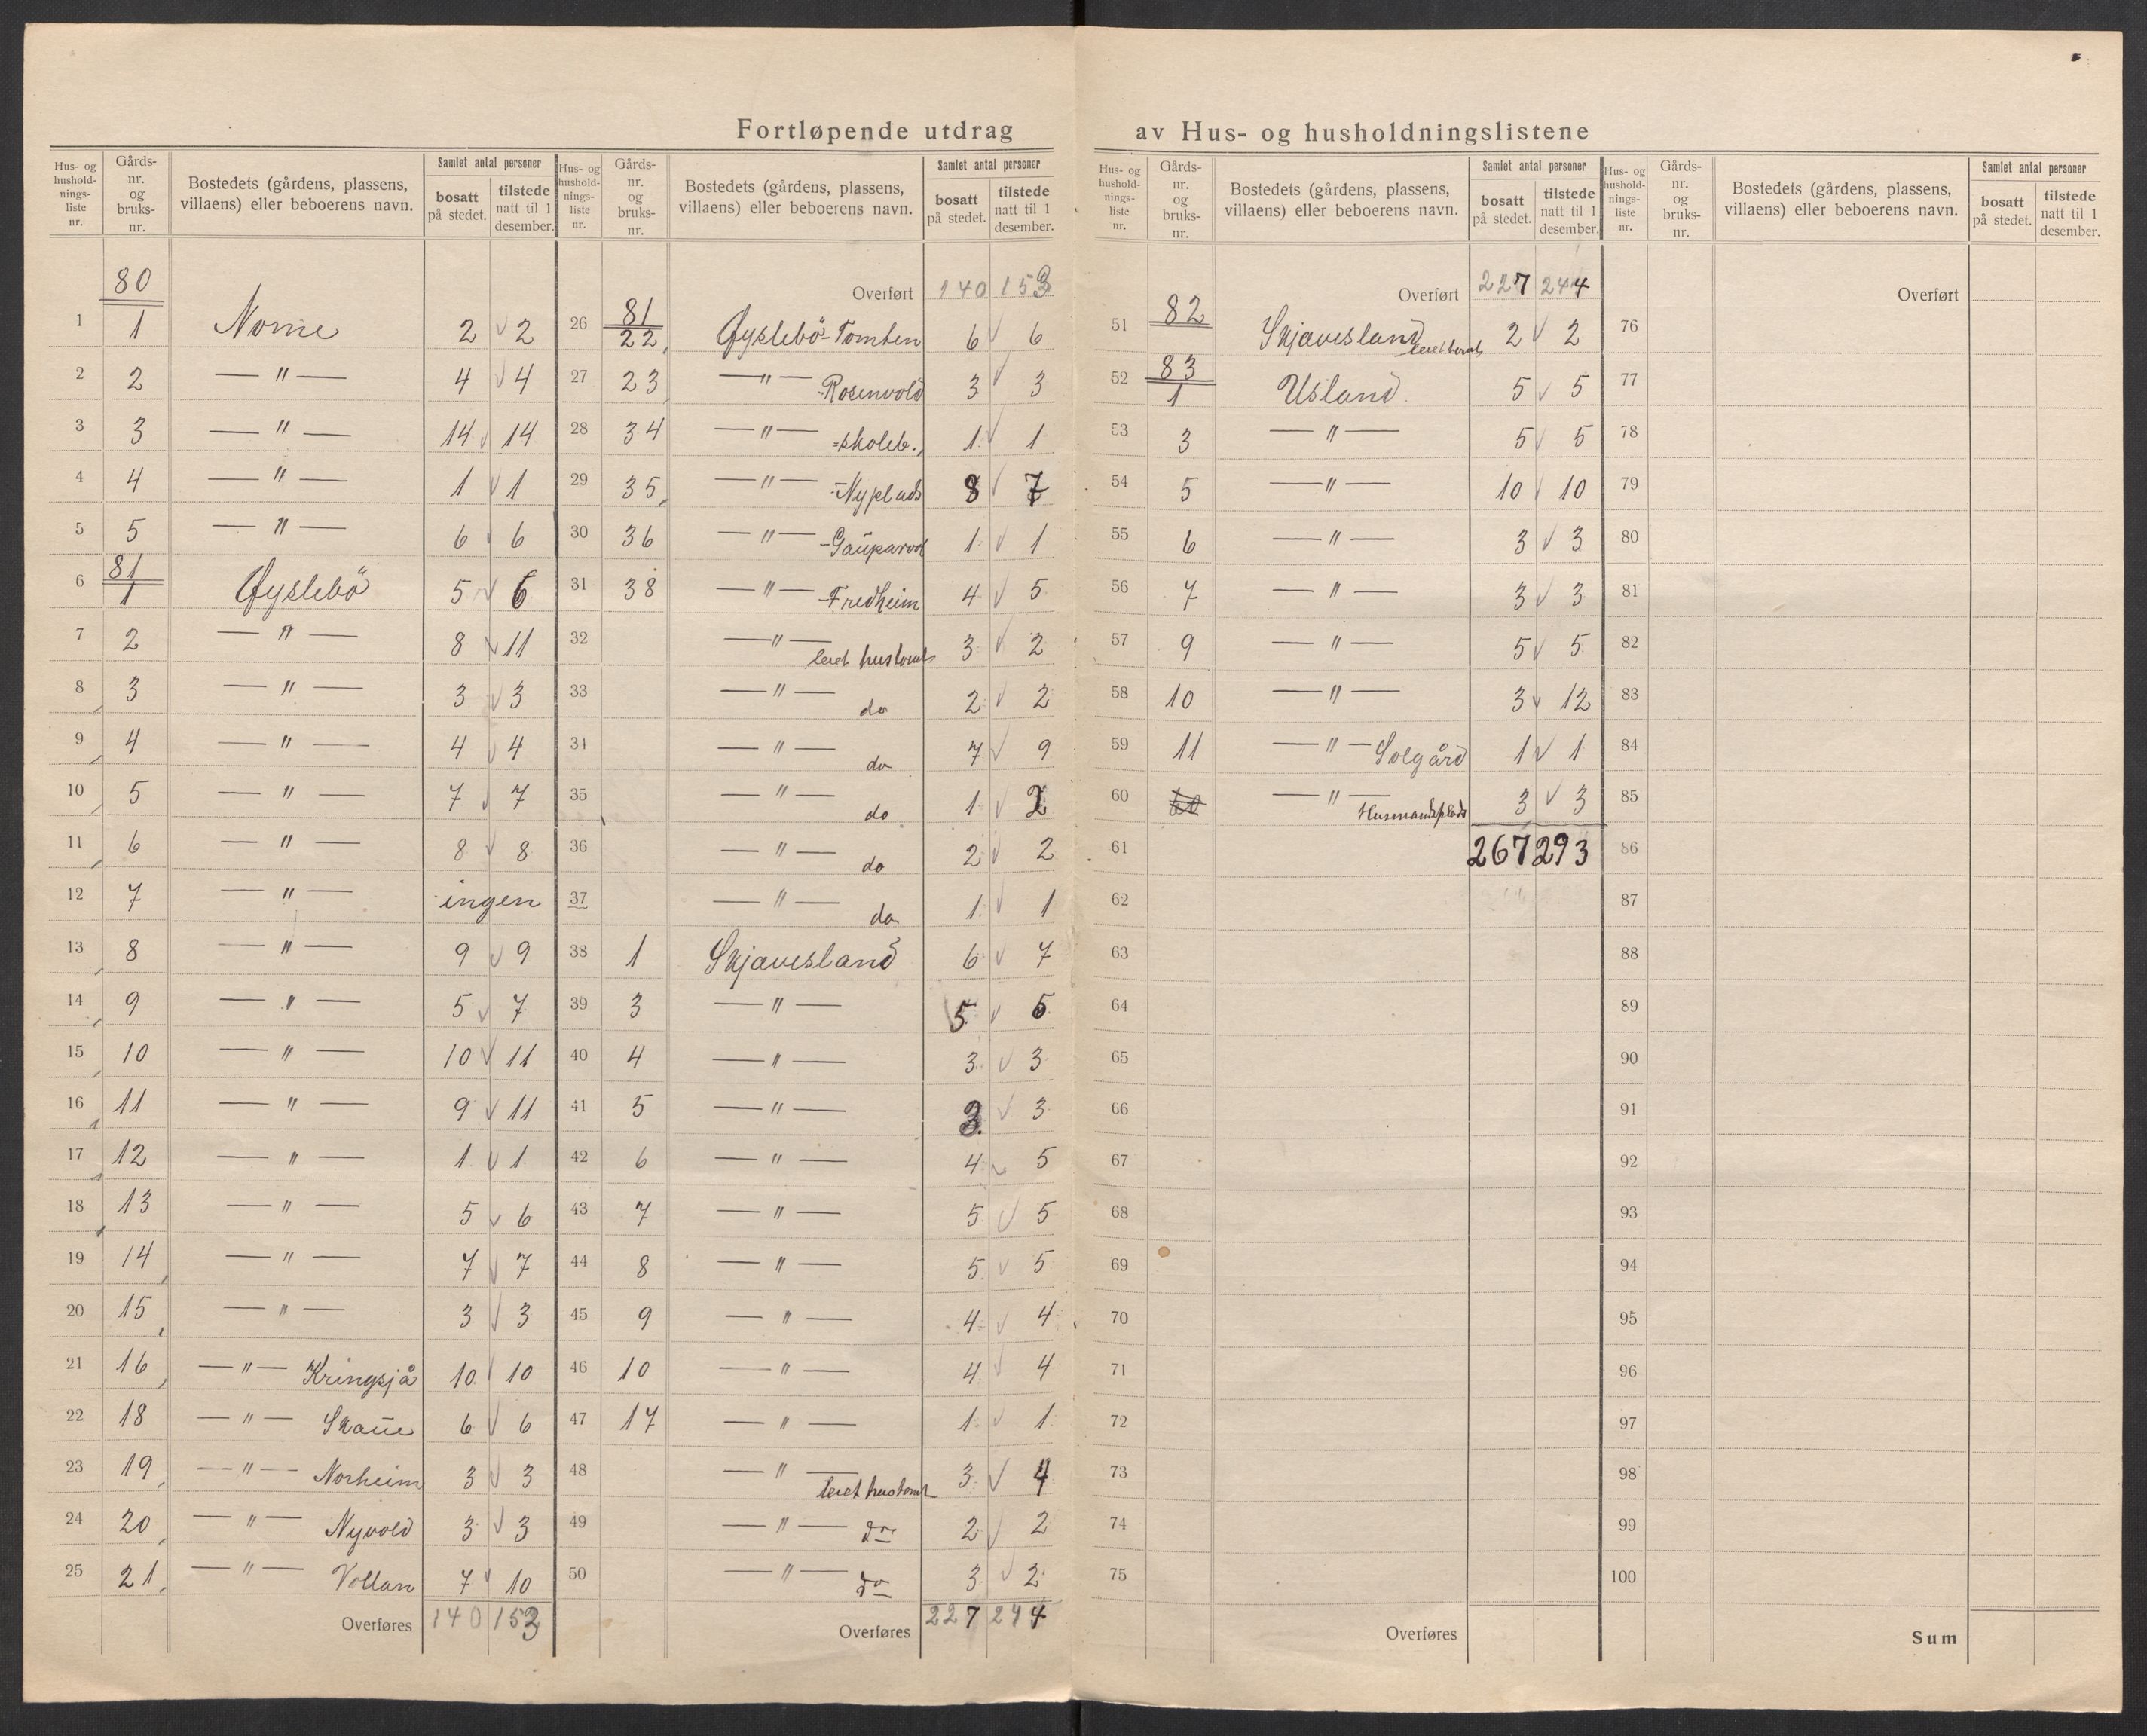 Fortløpende utdrag av Hus- og husholdningslistene
Hus- og hushold-nings-liste nr. | Gårds-nr. og bruks-nr. | Bostedets (gårdens, plassens, villaens) eller beboerens navn. | Samlet antal personer | bosatt på stedet. | tilstede natt til 1 desember.
80
1 | 1 | Nome | 2 | 2
2 | 2 | — " — | 4 | 4
3 | 3 | — " — | 14 | 14
4 | 4 | — " — | 1 | 1
5 | 5 | — " — | 6 | 6
81
6 | 1 | Øyslebö | 5 | 6
7 | 2 | — " — | 8 | 11
8 | 3 | — " — | 3 | 3
9 | 4 | — " — | 4 | 4
10 | 5 | — " — | 7 | 7
11 | 6 | — " — | 8 | 8
12 | 7 | — " — | ingen
13 | 8 | — " — | 9 | 9
14 | 9 | — " — | 5 | 7
15 | 10 | — " — | 10 | 11
16 | 11 | — " — | 9 | 11
17 | 12 | — " — | 1 | 1
18 | 13 | — " — | 5 | 6
19 | 14 | — " — | 7 | 7
20 | 15 | — " — | 3 | 3
21 | 16 | — " — Kringsjå | 10 | 10
22 | 18 | — " — Skaue | 6 | 6
23 | 19 | — " — Norheim | 3 | 3
24 | 20 | — " — Nyvold | 3 | 3
25 | 21 | — " — Vollan | 7 | 10
Overføres | 140 | 153
Hus- og hushold-nings-liste nr. | Gårds-nr. og bruks-nr. | Bostedets (gårdens, plassens, villaens) eller beboerens navn. | Samlet antal personer | bosatt på stedet. | tilstede natt til 1 desember.
Overført | 140 | 153
81
26 | 22 | Øyslebö - Tomten | 6 | 6
27 | 23 | — " — - Rosenvold | 3 | 3
28 | 34 | — " — = skoleb. | 1 | 1
29 | 35 | — " — - Nyplads | 8 | 7
30 | 36 | — " — - Gauparod | 1 | 1
31 | 38 | — " — - Fredheim | 4 | 5
32 | — " — leiet hustomt | 3 | 2
33 | — " — do | 2 | 2
34 | — " — do | 7 | 9
35 | — " — do | 1 | 2
36 | — " — do | 2 | 2
37 | — " — do | 1 | 1
38 | 1 | Skjævesland | 6 | 7
39 | 3 | — " — | 5 | 6
40 | 4 | — " — | 3 | 3
41 | 5 | — " — | 3 | 3
42 | 6 | — " — | 4 | 5
43 | 7 | — " — | 5 | 5
44 | 8 | — " — | 5 | 5
45 | 9 | — " — | 4 | 4
46 | 10 | — " — | 4 | 4
47 | 17 | — " — | 1 | 1
48 | — " — leiet hustomt | 3 | 4
49 | — " — do | 2 | 2
50 | — " — do | 3 | 2
Overføres | 227 | 244
Hus- og hushold-nings-liste nr. | Gårds-nr. og bruks-nr. | Bostedets (gårdens, plassens, villaens) eller beboerens navn. | Samlet antal personer | bosatt på stedet. | tilstede natt til 1 desember.
Overført | 227 | 244
82
51 | Skjævesland | 2 | 2
83
52 | 1 | Usland | 5 | 5
53 | 3 | — " — | 5 | 5
54 | 5 | — " — | 10 | 10
55 | 6 | — " — | 3 | 3
56 | 7 | — " — | 3 | 3
57 | 9 | — " — | 5 | 5
58 | 10 | — " — | 3 | 12
59 | 11 | — " — Solgård | 1 | 1
60 | — " — Husmandsplads | 3 | 3
61 | 267 | 293
62
63
64
65
66
67
68
69
70
71
72
73
74
75
Overføres
Hus- og hushold-nings-liste nr. | Gårds-nr. og bruks-nr. | Bostedets (gårdens, plassens, villaens) eller beboerens navn. | Samlet antal personer | bosatt på stedet. | tilstede natt til 1 desember.
Overført
76
77
78
79
80
81
82
83
84
85
86
87
88
89
90
91
92
93
94
95
96
97
98
99
100
Sum